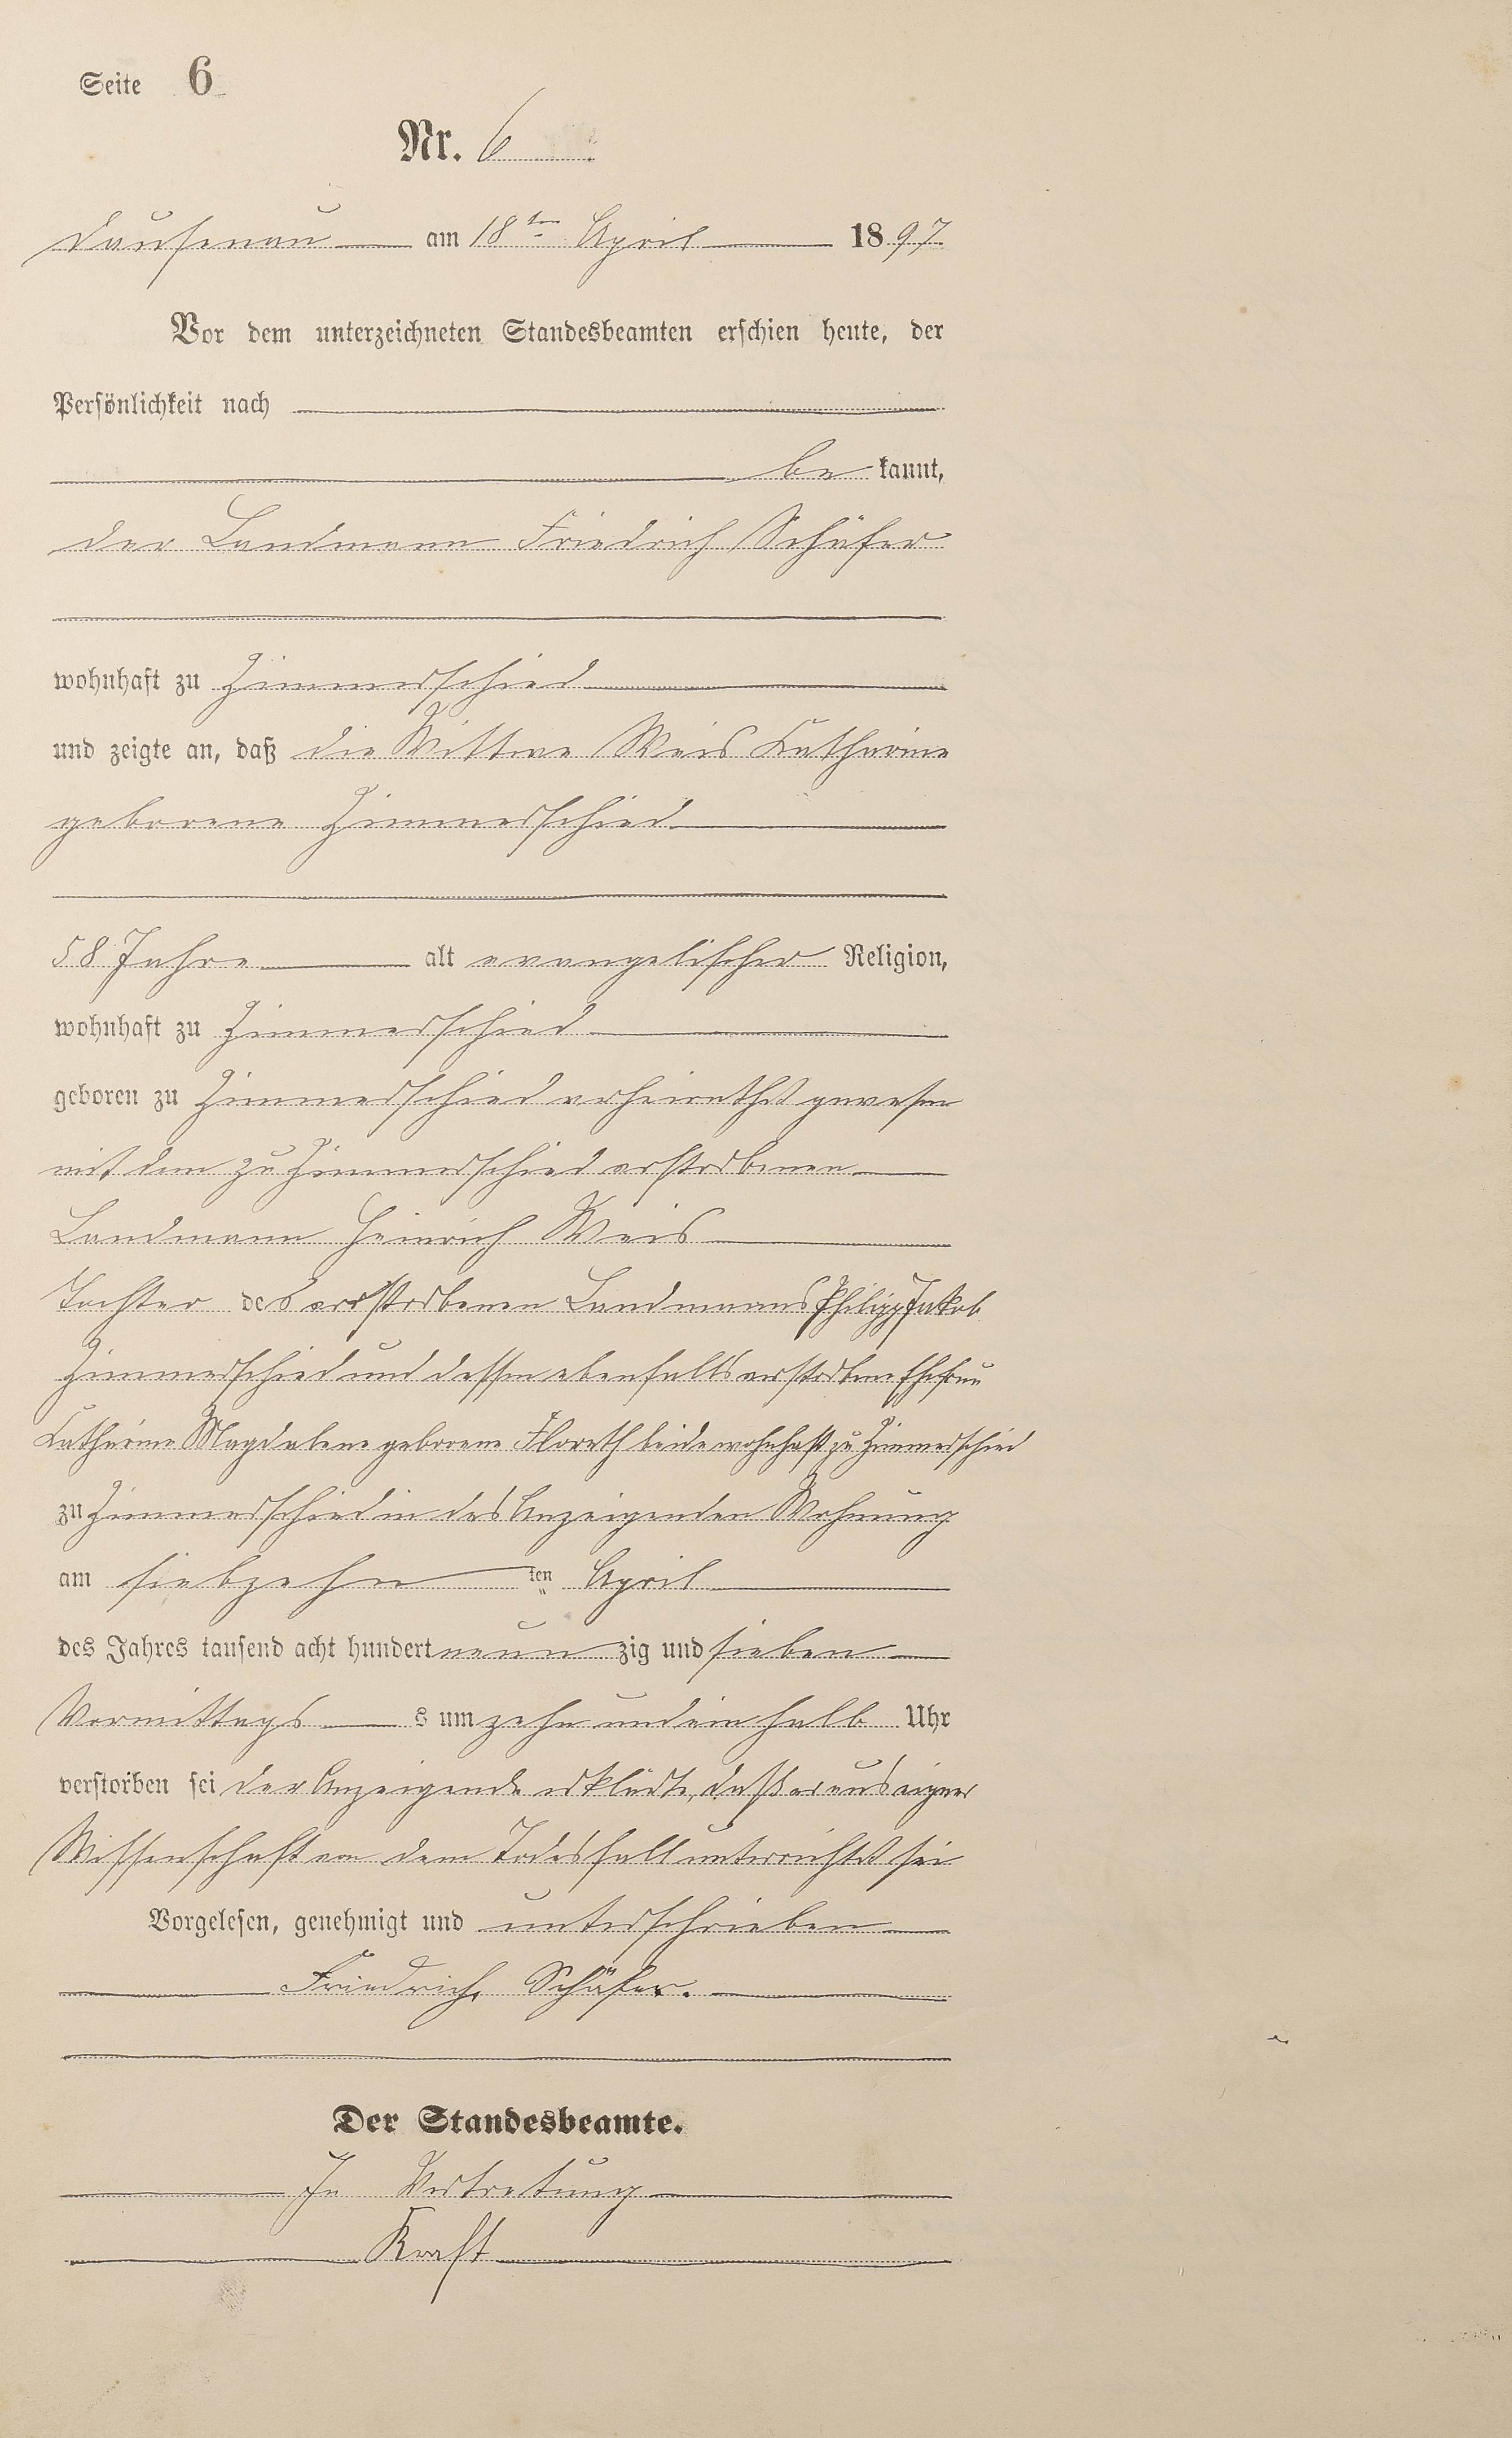 Seite 6
Nr. 6
Dausenau am 18ten April 1897
Vor dem unterzeichneten Standesbeamten erschien heute, der
Persönlichkeit nach
be kannt,
der Landmann Friedrich Schäfer
wohnhaft zu Zimmerschied
und zeigte an, daß die Wittwe Weis Katharine
geborene Zimmerschied
58 Jahre alt evangelischer Religion,
wohnhaft zu Zimmerschied
geboren zu Zimmerschied verheirathet gewesen
mit dem zu Zimmerschied verstorbenen
Landmann Heinrich Weis
Tochter des verstorbenen Landmanns Philipp Jakob
Zimmerschied und dessen ebenfalls verstorbene Ehefrau
Katharine Magdalene geborene Florath beide wohnhaft zu Zimmerschied
zu Zimmerschied in des Anzeigenden Wohnung
am siebzehn ten April
des Jahres tausend acht hundert neun zig und sieben
Vormittags s um zehn und ein halb Uhr
verstorben sei der Anzeigende erklärte, daß er aus eigner
Wissenschaft von dem Todesfall unterrichtet sei
Vorgelesen, genehmigt und unterschrieben
Friedrich Schäfer.
Der Standesbeamte.
In Vertretung
Kraft